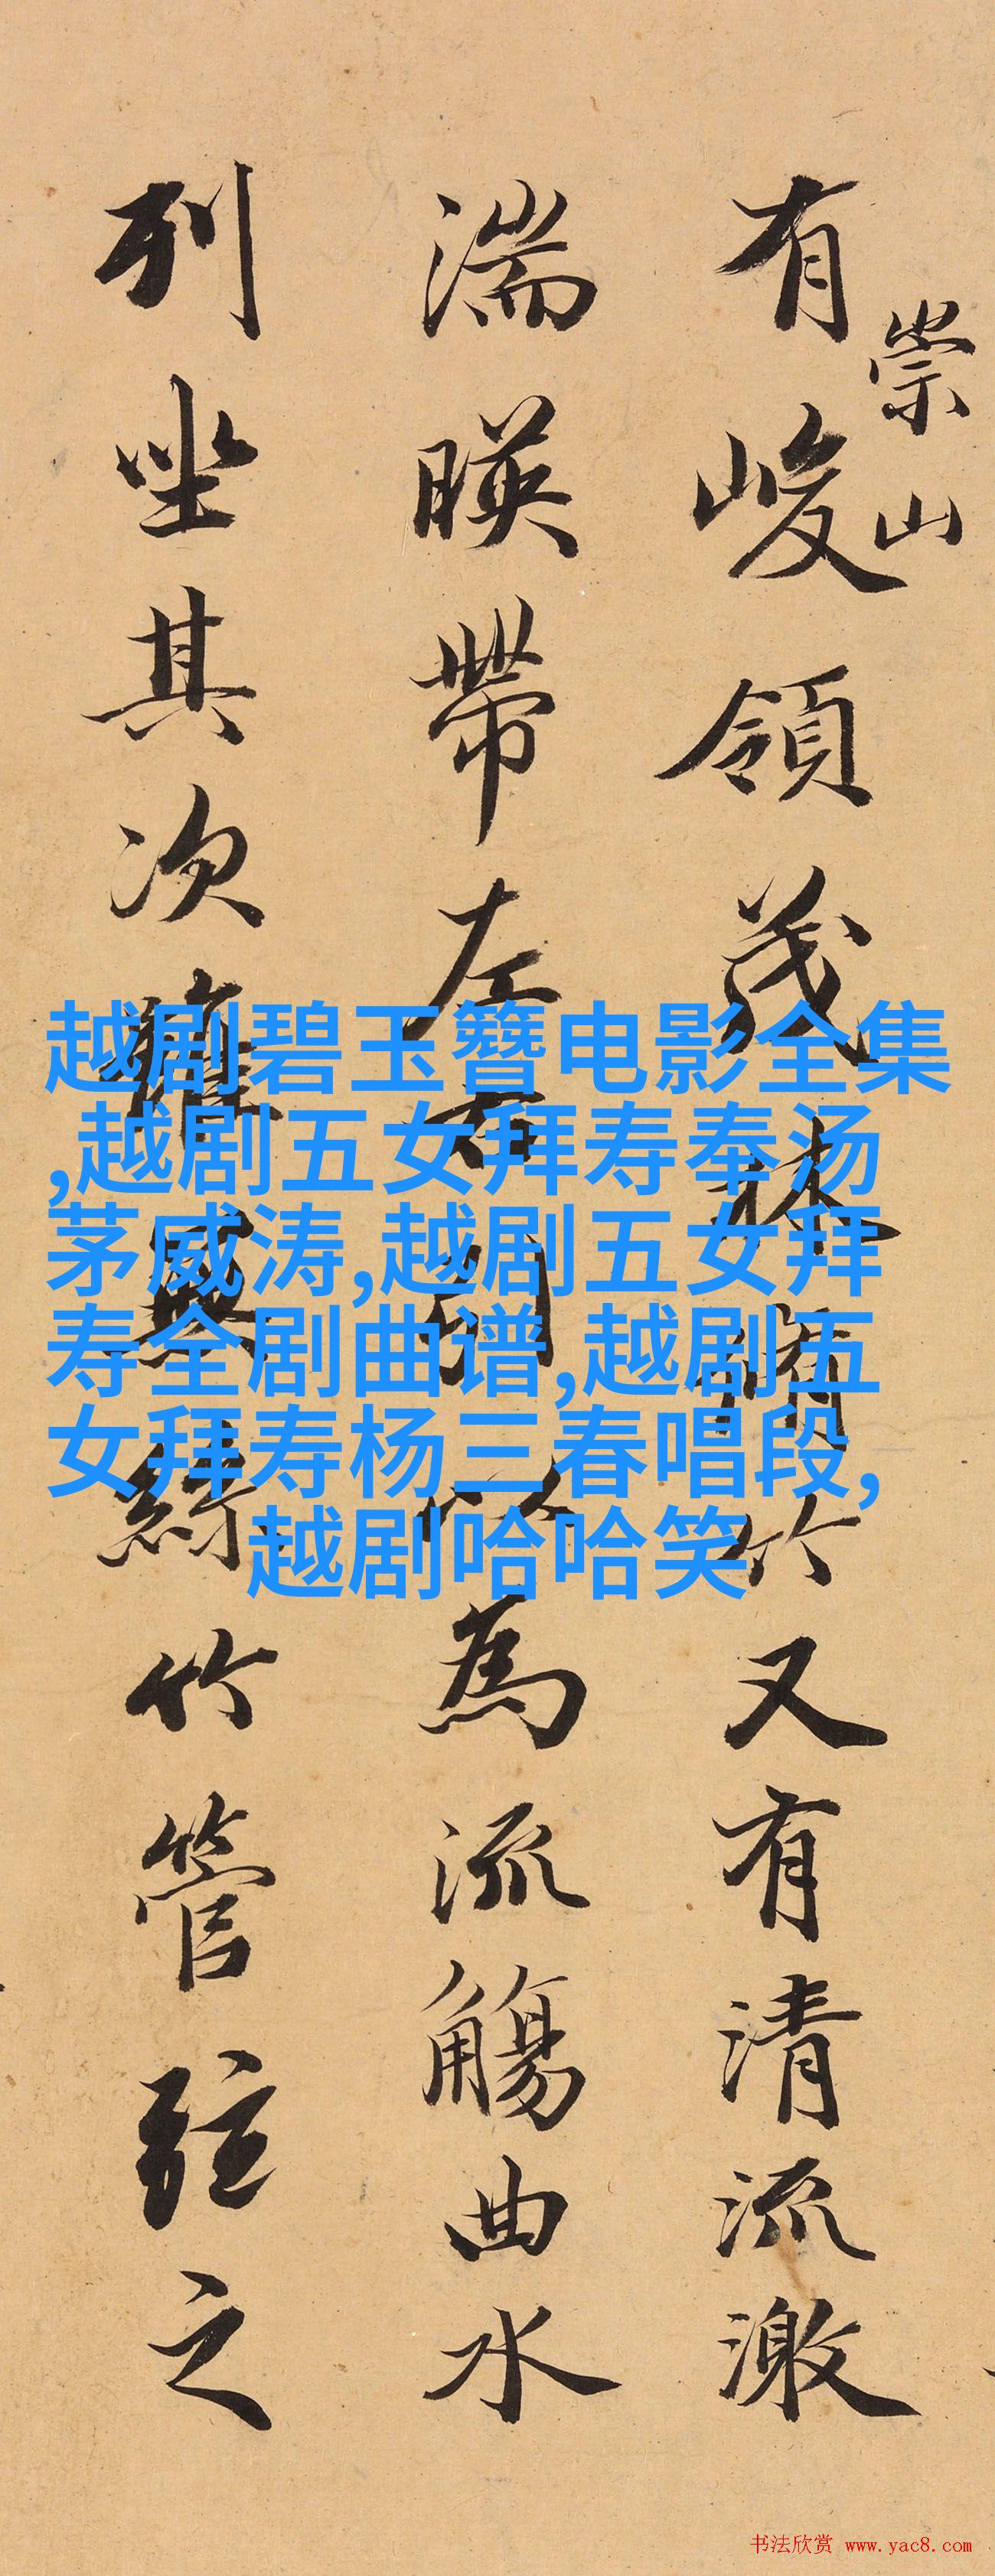 崇山
有峻領茂林脩竹又有清流激
湍暎帶左右引以為流觴曲水
列坐其次雖無絲竹管弦之
越剧碧玉簪电影全集
,越剧五女拜寿奉汤
茅威涛,越剧五女拜
寿全剧曲谱,越剧五
女拜寿杨三春唱段,
越剧哈哈笑
书法欣赏 www.yac8.com